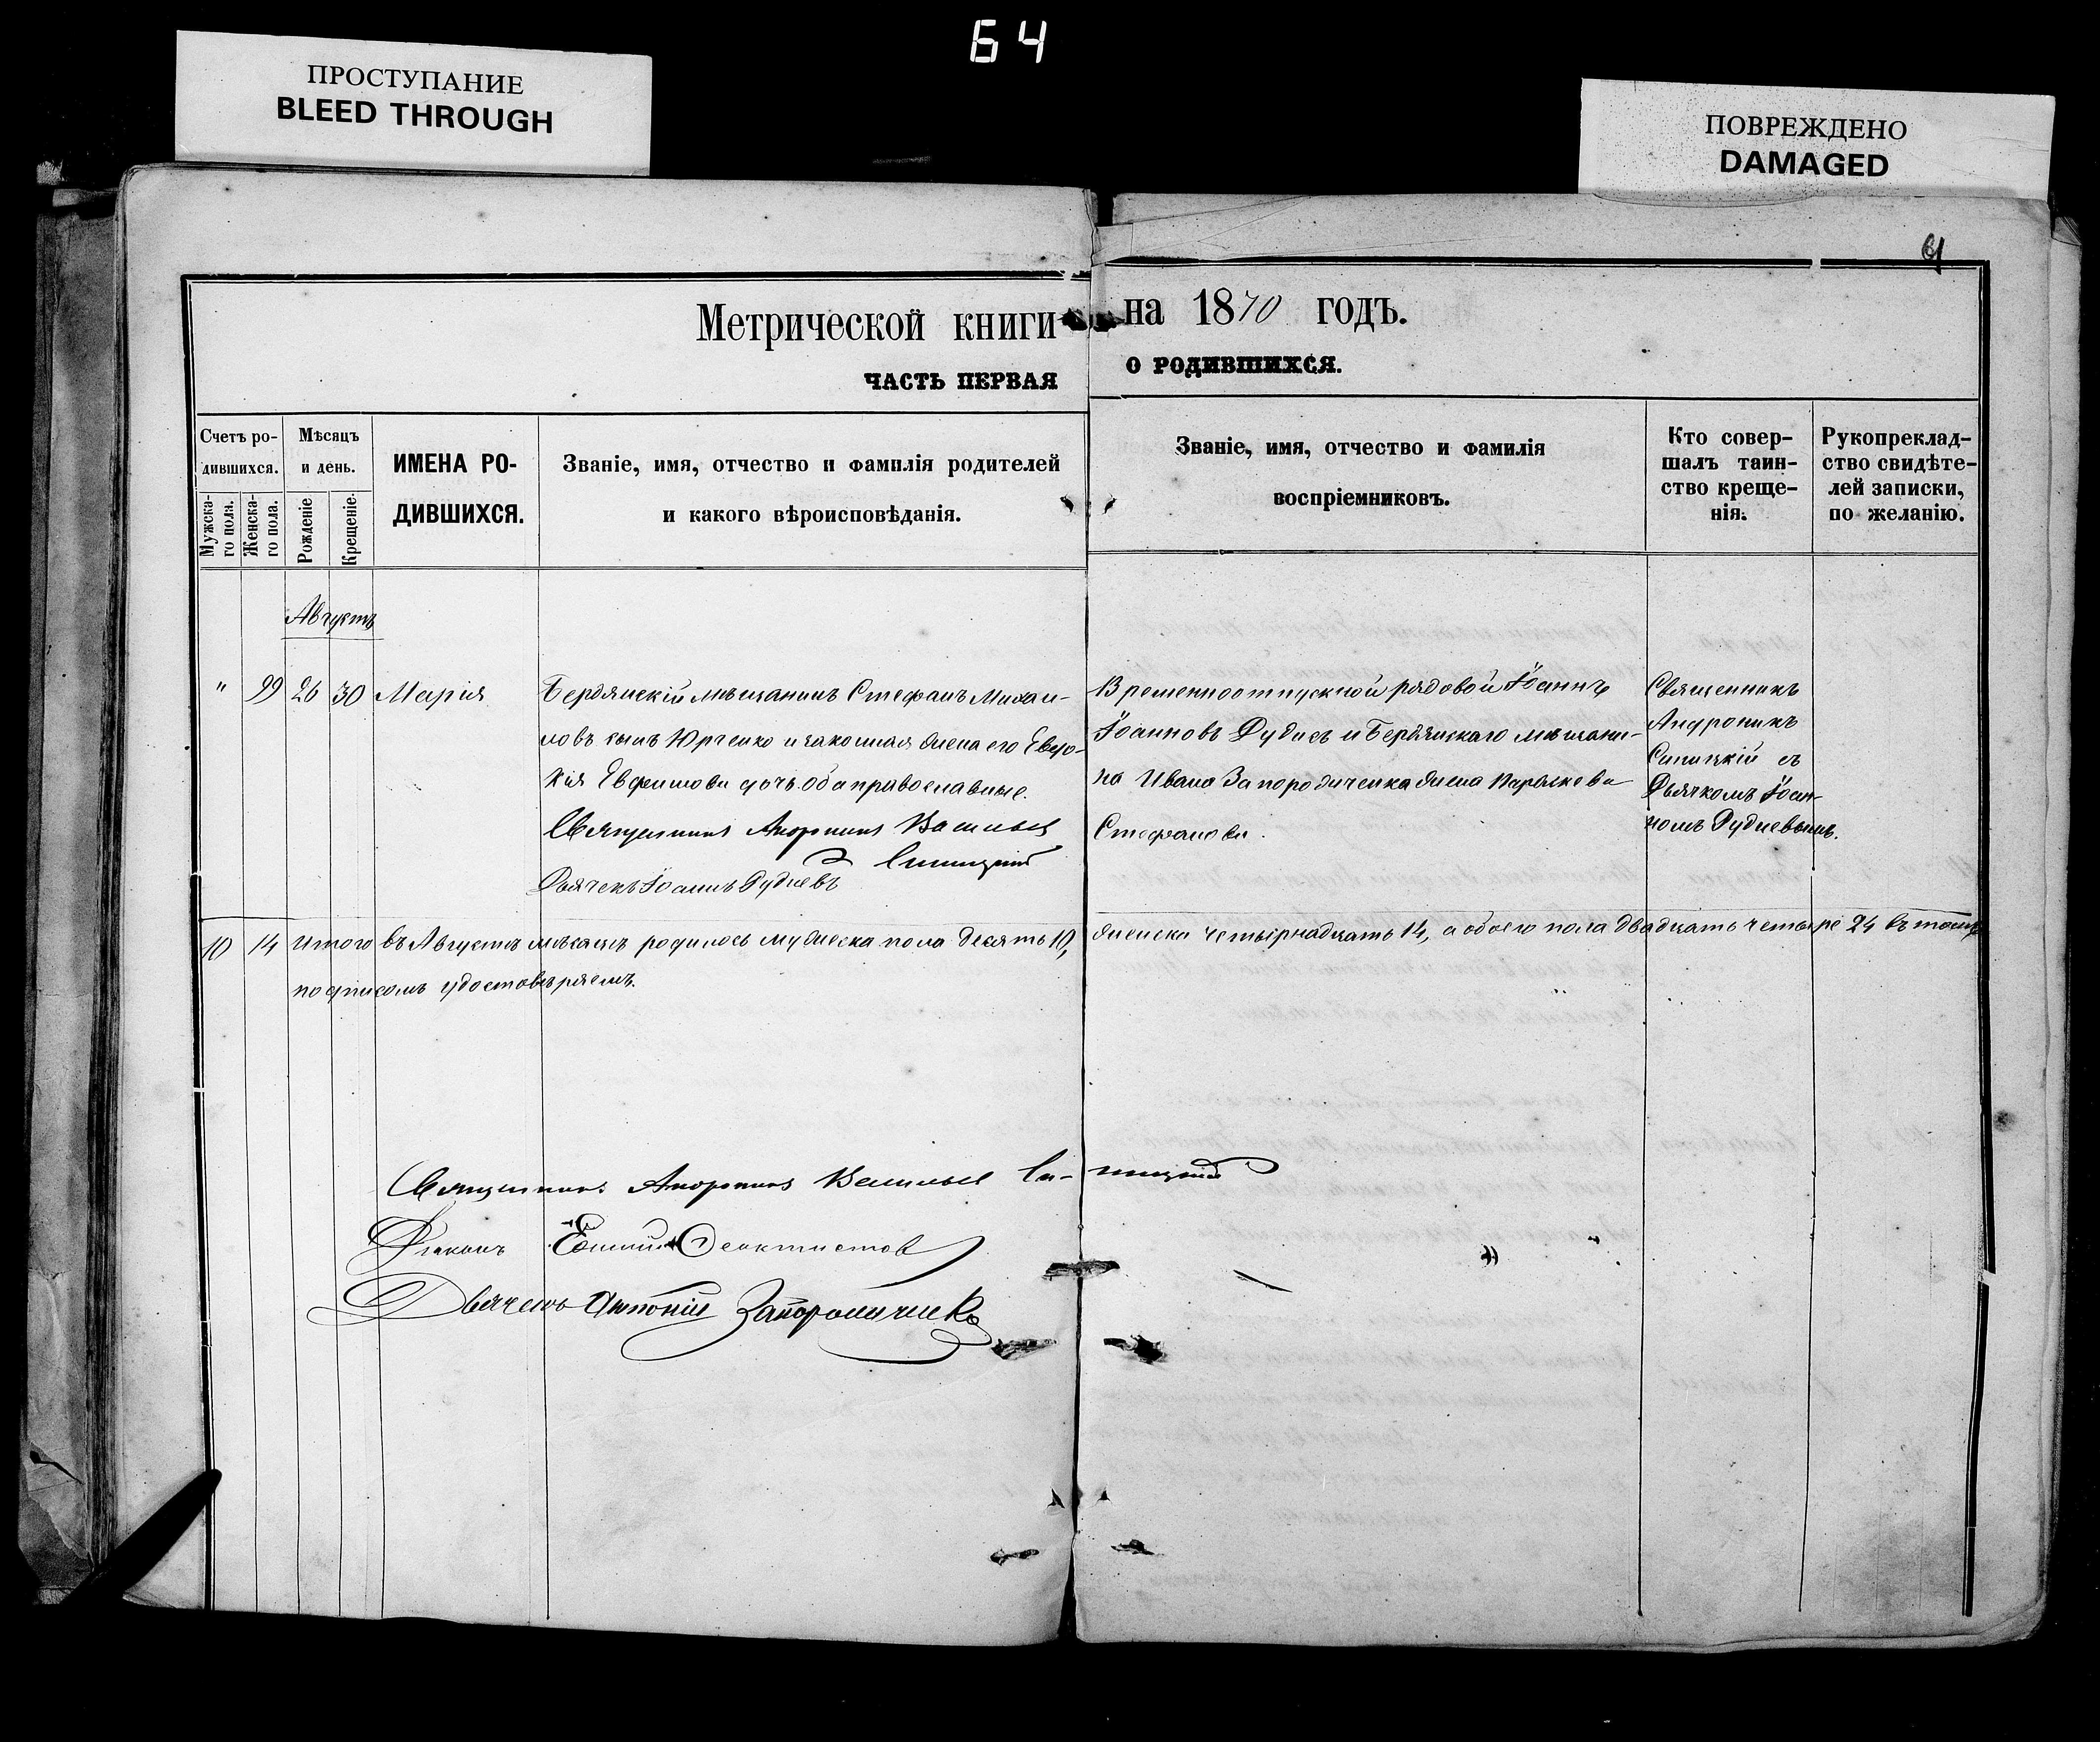 64
ПРОСТУПАНИЕ
BLEED THROUGH
ПОВРЕЖДЕНО
DAMAGED
Метрической книги на 1870 годъ.
ЧАСТЬ ПЕРВАЯ О РОДИВШИХСЯ.
Счетъ ро-
дившихся.
Мужска-
го пола.
Женска-
го пола.
Мѣсяцъ
и день.
Рожденіе
Крещеніе.
ИМЕНА РО-
ДИВШИХСЯ.
Званіе, имя, отчество и фамилія родителей
и какого вѣроисповѣданія.
Званіе, имя, отчество и фамилія
воспріемниковъ.
Кто совер-
шалъ таин-
ство креще-
нія.
Рукопреклад-
ство свидѣте-
лей записки,
по желанію.
Августъ
" 99 26 30 Марія
Бердянскій мѣщанинъ Стефанъ Михаи-
ловъ сынъ Юрченко и законная жена его Евдо-
кія Евфимова дочь. Оба православные.
Священникъ Андроникъ Васильевъ
Синицкій
Дьячекъ Іоаннъ Рудневъ
Временноотпускной рядовой Іоаннъ
Іоанновъ и Бердянскаго мѣщани-
на Ивана Запорожченка жена Параскева
Стефанова.
Священникъ
Андроникъ
Синицкій съ
Дьячкомъ Іоан-
номъ Рудневымъ.
10 14 Итого въ Августѣ мѣсяцѣ родилось мужеска пола десять 10, женска четырнадцать 14, а обоего пола двадцать четыре 24 въ томъ
подписомъ удостовѣряемъ.
Священникъ Андроникъ Васильевъ Си-ницкій
Діаконъ Феоктистовъ
Дьячекъ Антоній Запорожченко